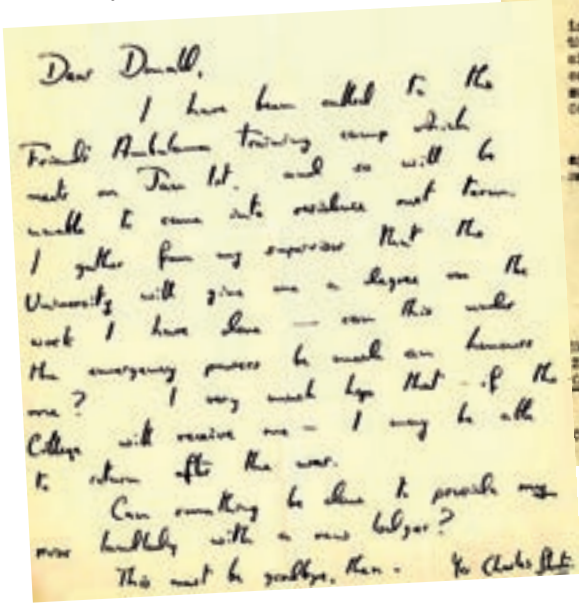 Dear Donald,
I have been called to the
Friends Ambulance training camp which
meets on Jan 1st. and so will be
unable to come into residence next term.
I gather from my supervisor that the
University will give me a degree on the
work I have done — can this under
the emergency powers be made an honours
one? I very much hope that - if the
College will receive me - I may be able
to return after the war.
Can something be done to provide my
more with a new
This must be goodbye, then. Yrs Charles